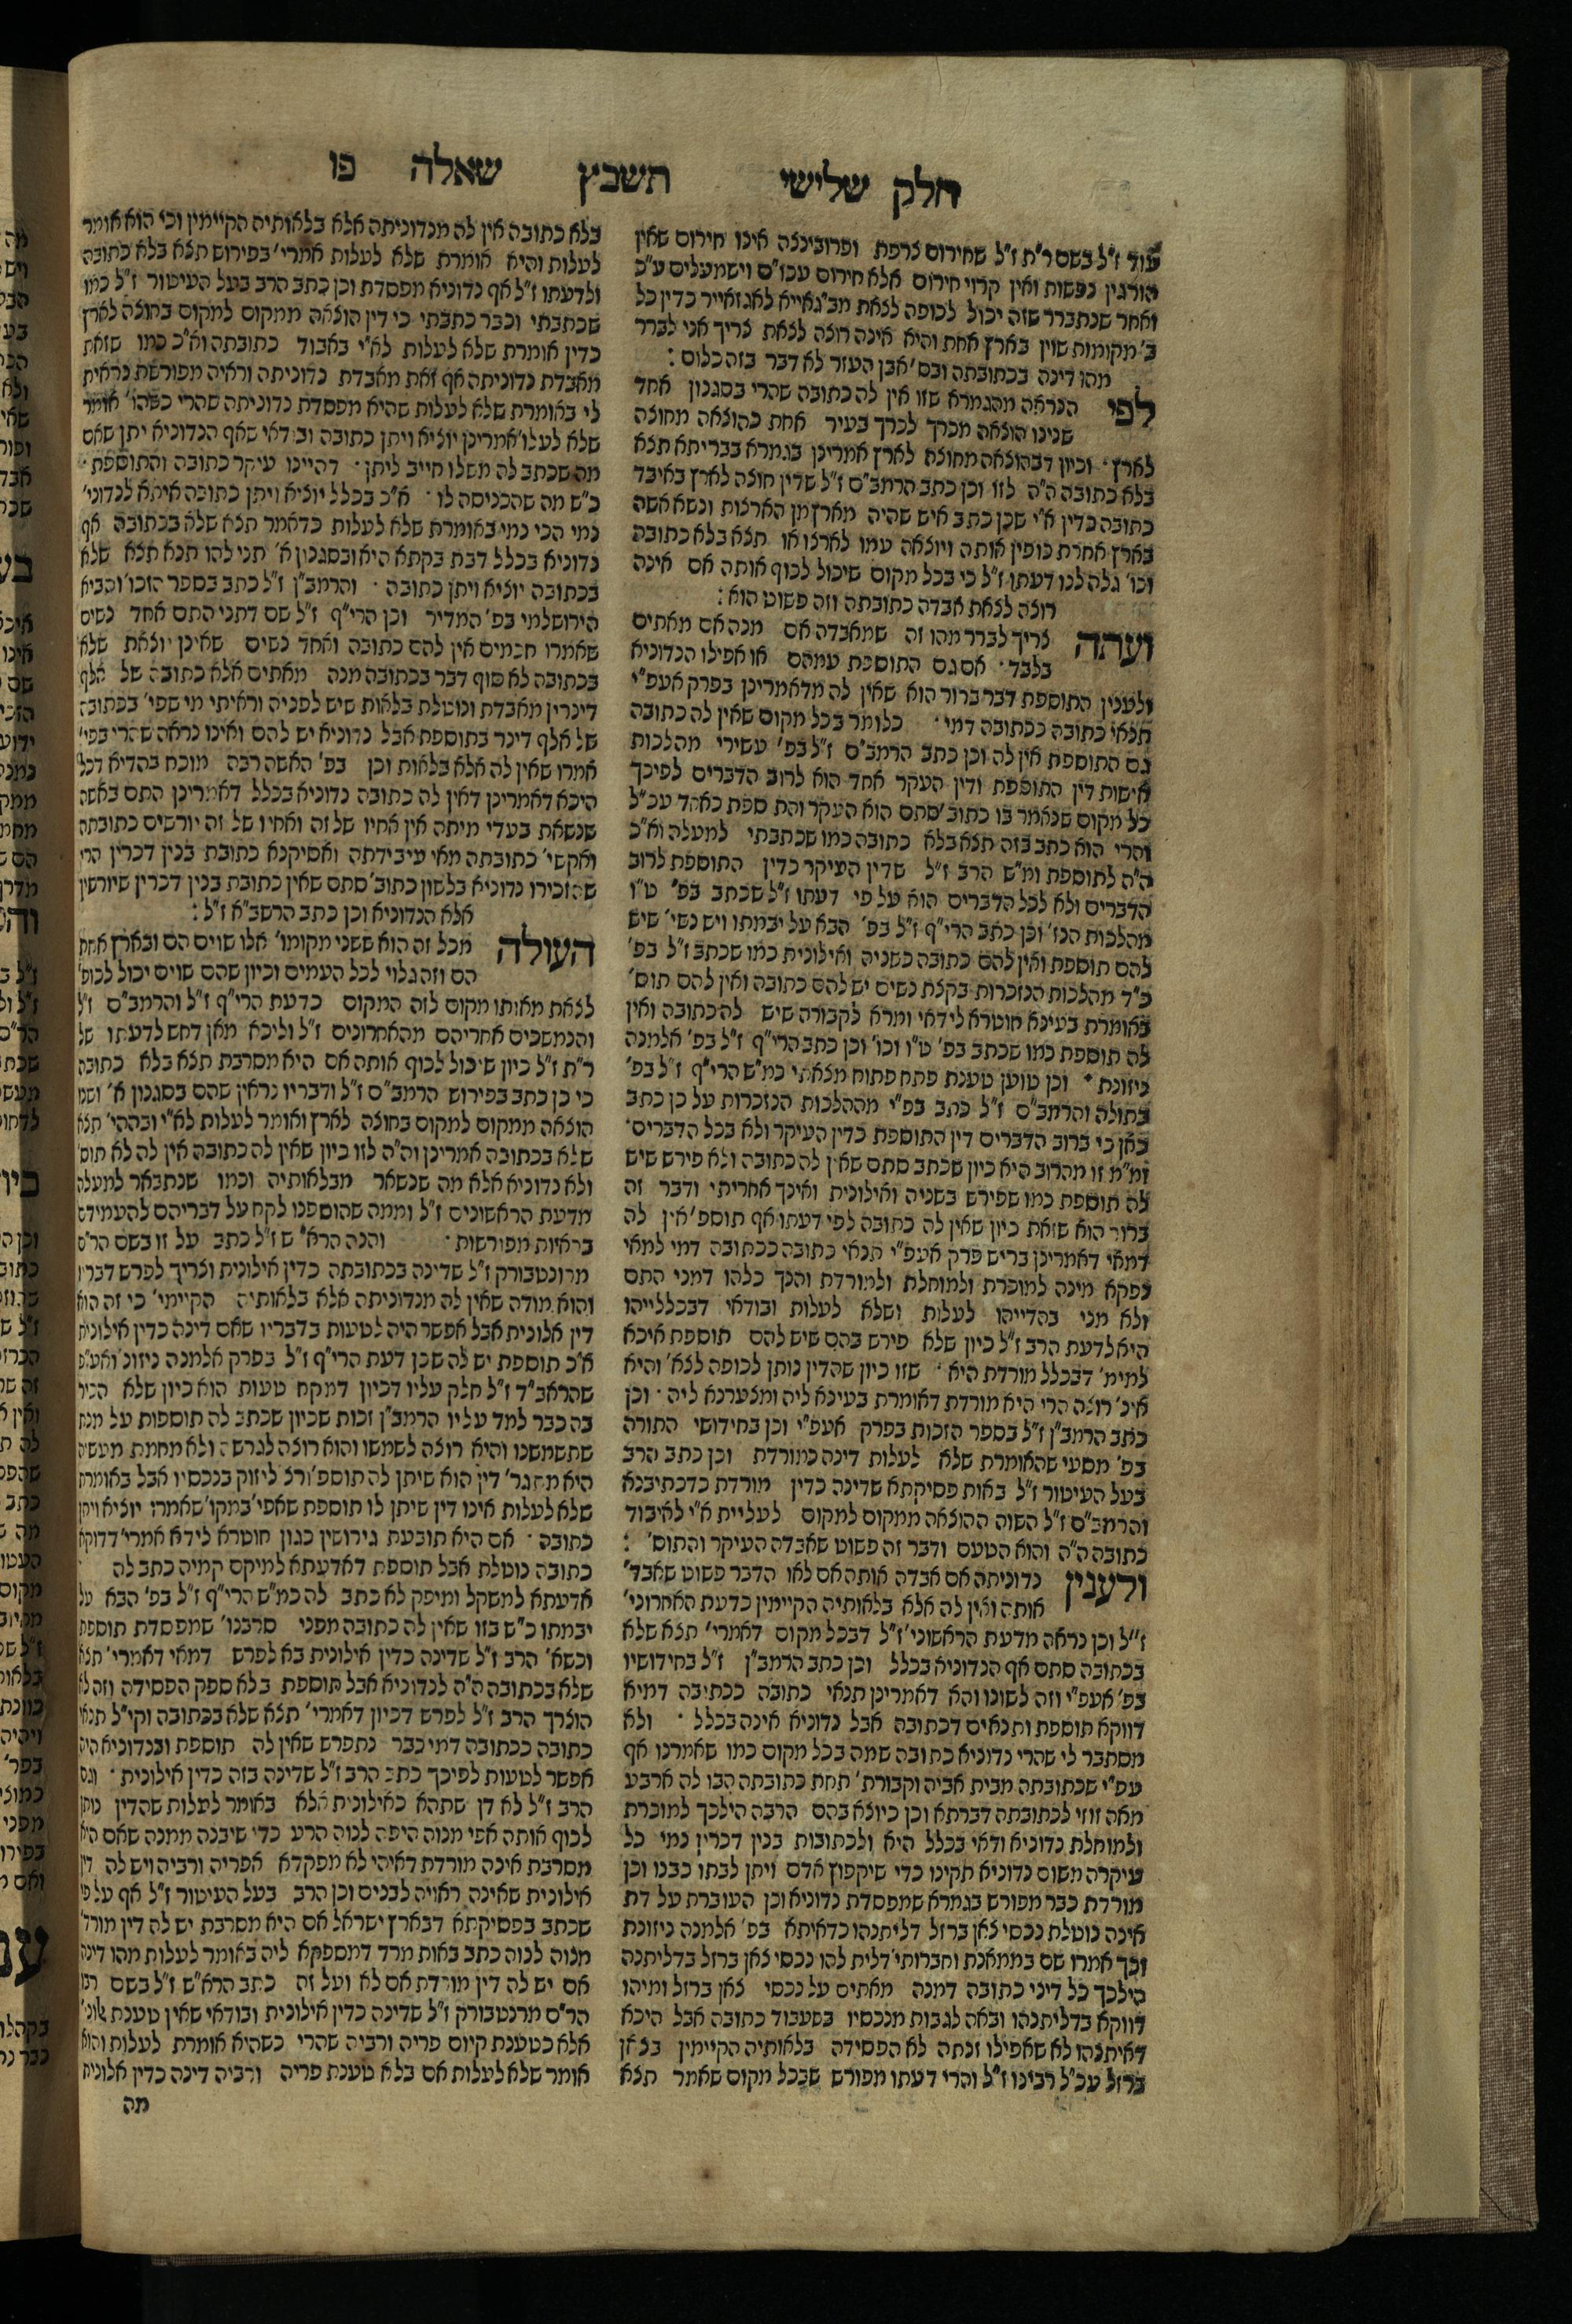 חלק שלישי תשבץ שאלה פו
עוד ז"ל בשם ר"ת ז"ל שחירום צרפת ופרובינצה אינו חירום שאין
הורגין נפשות ואין קרוי חירום אלא חירום עכו"ם וישמעלים ע"כ
ואחר שנתברר שזה יכול לכופה לצאת מבגאייא לאגזאייר כדין כל
ב' מקומות שוין בארץ אחת והיא אינה רוצה לצאת צריך אני לברר
מהו דינה בכתובתה ובס' אבן העזר לא דבר בזה כלום :
לפי הנראה מהגמרא שזו אין לה כתובה שהרי בסגנון אחד
שנינו הוצאה מכרך לכרך בעיר אחת כהוצאה מחוצה
לארץ · וכיון דבהוצאה מחוצה לארץ אמרינן בגמרא בברייתא תצא
בלא כתובה ה"ה לזו וכן כתב הרמב"ם ז"ל שדין חוצה לארץ באיבד
כתובה כדין א"י שכן כתב איש שהיה מארץ מן הארצות ונשא אשה
בארץ אחרת כופין אותה ויוצאה עמו לארצו או תצא בלא כתובה
וכו' גלה לנו דעתו ז"ל כי בכל מקום שיכול לכוף אותה אם אינה
רוצה לצאת אבדה כתובתה וזה פשוט הוא :
ועתה צריך לברר מהו זה שמאבדה אם מנה אם מאתים
בלבד · אם גם התוספת עמהם או אפילו הנדוניא
ולענין התוספת דבר ברור הוא שאין לה מדאמרינן בפרק אעפ"י
תנאי כתובה ככתובה דמי · כלומר בכל מקום שאין לה כתובה
גם התוספת אין לה וכן כתב הרמב"ם ז"ל בפ' עשירי מהלכות
אישות דין התוספת ודין העקר אחד הוא לרוב הדברים לפיכך
כל מקום שנאמר בו כתוב' סתם הוא העקר והתוספת כאחד עכ"ל
והרי הוא כתב בזה תצא בלא כתובה כמו שכתבתי למעלה וא"כ
ה"ה לתוספת ומ"ש הרב ז"ל שדין העיקר כדין התוספת לרוב
הדברים ולא לכל הדברים הוא על פי דעתו ז"ל שכתב בפ' ט"ו
מהלכות הנז' וכן כתב הרי"ף ז"ל בפ' הבא על יבמתו ויש נשי' שיש
להם תוספת ואין להם כתובה כשניה ואילונית כמו שכתב ז"ל בפ'
כ"ד מהלכות הנזכרות בקצת נשים יש להם כתובה ואין להם תוס'
באומרת בעינא חוטרא לידאי ומרא לקבורה שיש לה כתובה ואין
לה תוספת כמו שכתב בפ' ט"ו וכו' וכן כתב הרי"ף ז"ל בפ' אלמנה
ניזונת · וכן טוען טענת פתח פתוח מצאתי כמ"ש הרי"ף ז"ל בפ'
בתולה והרמב"ם ז"ל כתב בפ"י מההלכות הנזכרות על כן כתב
כאן כי ברוב הדברים דין התוספת כדין העיקר ולא בכל הדברים ·
ומ"מ זו מהרוב היא כיון שכתב סתם שאין לה כתובה ולא פירש שיש
לה תוספת כמו שפירש בשניה ואילונית ואינך אחריתי ודבר זה
ברור הוא שזאת כיון שאין לה כתובה לפי דעתו אף תוספ' אין לה
דמאי דאמרינן בריש פרק אעפ"י תנאי כתובה ככתובה דמי למאי
נפקא מינה למוכרת ולמוחלת ולמורדת והנך כלהו דמני התם
ולא מני בהדייהו לעלות ושלא לעלות ובודאי דבכללייהו
היא לדעת הרב ז"ל כיון שלא פירש בהם שיש להם תוספת איכא
למימ' דבכלל מורדת היא · שזו כיון שהדין נותן לכופה לצא' והיא
אינ' רוצה הרי היא מורדת דאומרת בעינא ליה ומצערנא ליה · וכן
כתב הרמב"ן ז"ל בספר הזכות בפרק אעפ"י וכן בחידושי התורה
בפ' מסעי שהאומרת שלא לעלות דינה כמורדת וכן כתב הרב
בעל העיטור ז"ל באות פסיקתא שדינה כדין מורדת כדכתיבנא
והרמב"ם ז"ל השוה ההוצאה ממקום למקום לעליית א"י לאיבוד
כתובה ה"ה והוא הטעם ודבר זה פשוט שאבדה העיקר והתוס' :
ולענין נדוניתה אם אבדה אותה אם לאו הדבר פשוט שאבד'
אותה ואין לה אלא בלאותיה הקיימין כדעת האחרוני'
ז"ל וכן נראה מדעת הראשוני' ז"ל דבכל מקום דאמרי' תצא שלא
בכתובה סתם אף הנדוניא בכלל וכן כתב הרמב"ן ז"ל בחידושיו
בפ' אעפ"י וזה לשונו והא דאמרינן תנאי כתובה ככתיבה דמיא
דווקא תוספת ותנאים דכתובה אבל נדוניא אינה בכלל · ולא
מסתבר לי שהרי נדוניא כתובה שמה בכל מקום כמו שאמרנו אף
עפ"י שכתובתה מבית אביה וקבורת' תחת כתובתה הבו לה ארבע
מאה זוזי לכתובתה דברתא וכן כיוצא בהם הרבה הילכך למוכרת
ולמוחלת נדוניא ודאי בכלל היא ולכתובות בנין דכרין נמי כל
עיקרה משום נדוניא תקינו כדי שיקפוץ אדם ויתן לבתו כבנו וכן
מורדת כבר מפורש בגמרא שמפסדת נדוניא וכן העוברת על דת
אינה נוטלת נכסי צאן ברזל דליתנהו כדאיתא בפ' אלמנה ניזונת
וכך אמרו שם בממאנת וחברותי' דלית להו נכסי צאן ברזל בדליתנה
הילכך כל דיני כתובה דמנה מאתים על נכסי צאן ברזל ומיהו
דווקא בדליתנהו ובאה לגבות מנכסיו בשעבוד כתובה אבל היכא
דאיתנהו לא שאפילו זנתה לא הפסידה בלאותיה הקיימין בצאן
ברזל עכ"ל רבינו ז"ל והרי דעתו מפורש שבכל מקום שאמר תצא
בלא כתובה אין לה מנדוניתה אלא בלאותיה הקיימין וכי הוא אומר
לעלות והיא אומרת שלא לעלות אמרי' בפירוש תצא בלא כתובה
ולדעתו ז"ל אף נדוניא מפסדת וכן כתב הרב בעל העיטור ז"ל כמו
שכתבתי וכבר כתבתי כי דין הוצאה ממקום למקום בחוצה לארץ
כדין אומרת שלא לעלות לא"י באבוד כתובתה וא"כ כמו שזאת
מאבדת נדוניתה אף זאת מאבדת נדוניתה וראיה מפורשת נראית
לי באומרת שלא לעלות שהיא מפסדת נדוניתה שהרי כשהו' אומר
שלא לעלו' אמרינן יוציא ויתן כתובה ובודאי שאף הנדוניא יתן שאם
מה שכתב לה משלו חייב ליתן · דהיינו עיקר כתובה והתוספת ·
כ"ש מה שהכניסה לו · א"כ בכלל יוציא ויתן כתובה איתא לנדוני'
נמי הכי נמי באומרת שלא לעלות כדאמר תצא שלא בכתובה אף
נדוניא בכלל דבת בקתא היא ובסגנון א' תני להו תנא תצא שלא
בכתובה יוציא ויתן כתובה · והרמב"ן ז"ל כתב בספר הזכו' והביא
הירושלמי בפ' המדיר וכן הרי"ף ז"ל שם דתני התם אחד נשים
שאמרו חכמים אין להם כתובה ואחד נשים שאינן יוצאת שלא
בכתובה לא סוף דבר בכתובה מנה מאתים אלא כתובה של אלף
דינרין מאבדת ונוטלת בלאות שיש לפניה וראיתי מי שפי' בכתובה
של אלף דינר בתוספת אבל נדוניא יש להם ואינו נראה שהרי בפי'
אמרו שאין לה אלא בלאות וכן בפ' האשה רבה מוכח בהדיא דכל
היכא דאמרינן דאין לה כתובה נדוניא בכלל דאמרינן התם באשה
שנשאת בעדי מיתה אין אחיו של זה ואחיו של זה יורשים כתובתה
ואקשי' כתובתה מאי עיבידתה ואסיקנא כתובת בנין דכרין הרי
שהזכירו נדוניא בלשון כתוב' סתם שאין כתובת בנין דכרין שיורשין
אלא הנדוניא וכן כתב הרשב"א ז"ל :
העולה מכל זה הוא ששני מקומו' אלו שוים הם ובארץ אחת
הם וזה גלוי לכל העמים וכיון שהם שוים יכול לכוף'
לצאת מאותו מקום לזה המקום כדעת הרי"ף ז"ל והרמב"ם ז"ל
והנמשכים אחריהם מהאחרונים ז"ל וליכא מאן דחש לדעתו של
ר"ת ז"ל כיון שיכול לכוף אותה אם היא מסרבת תצא בלא כתובה
כי כן כתב בפירוש הרמב"ם ז"ל ודבריו נראין שהם בסגנון א' ושוו
הוצאה ממקום למקום בחוצה לארץ ואומר לעלות לא"י ובההי' תצא
שלא בכתובה אמרינן וה"ה לזו כיון שאין לה כתובה אין לה לא תוס'
ולא נדוניא אלא מה שנשאר מבלאותיה וכמו שנתבאר למעלה
מדעת הראשונים ז"ל וממה שהוספנו לקח על דבריהם להעמידם
בראיות מפורשות · והנה הרא"ש ז"ל כתב על זו בשם הר"ם
מרונטבורק ז"ל שדינה בכתובתה כדין אילונית וצריך לפרש דבריו
והוא מודה שאין לה מנדוניתה אלא בלאותיה הקיימי' כי זה הוא
דין אלונית אבל אפשר היה לטעות בדבריו שאם דינה כדין אילונית
א"כ תוספת יש לה שכן דעת הרי"ף ז"ל בפרק אלמנה ניזונ' ואע"פ
שהראב"ד ז"ל חלק עליו דכיון דמקח טעות הוא כיון שלא הכיר
בה כבר למד עליו הרמב"ן זכות שכיון שכתב לה תוספות על מנת
שתשמשנו והיא רוצה לשמשו והוא רוצה לגרשה ולא מחמת מעשיה
היא מתגר' דין הוא שיתן לה תוספ' ורצ' ליזוק בנכסיו אבל באומרת
שלא לעלות אינו דין שיתן לו תוספת שאפי' במקו' שאמרו יוציא ויתן
כתובה · אם היא תובעת גירושין כגון חוטרא לידא אמרי' דדוקא
כתובה נוטלת אבל תוספת דאדעתא למיקם קמיה כתב לה
אדעתא למשקל ומיפק לא כתב לה כמ"ש הרי"ף ז"ל בפ' הבא על
יבמתו כ"ש בזו שאין לה כתובה מפני סרבנו' שמפסדת תוספת
וכשא' הרב ז"ל שדינה כדין אילונית בא לפרש דמאי דאמרי' תצא
שלא בכתובה ה"ה לנדוניא אבל תוספת בלא ספק הפסידה וזה לא
הוצרך הרב ז"ל לפרש דכיון דאמרי' תצא שלא בכתובה וקי"ל תנאי
כתובה ככתובה דמי כבר נתפרש שאין לה תוספת ובנדוניא היה
אפשר לטעות לפיכך כתב הרב ז"ל שדינה בזה כדין אילונית · וגם
הרב ז"ל לא דן שתהא כאילונית אלא באומר לעלות שהדין נותן
לכוף אותה אפי מנוה היפה לנוה הרע כדי שיבנה ממנה שאם היא
מסרבת אינה מורדת דאיהי לא מפקדא אפריה ורביה ויש לה דין
אילונית שאינה ראויה לבנים וכן הרב בעל העיטור ז"ל אף על פי
שכתב בפסיקתא דבארץ ישראל אם היא מסרבת יש לה דין מורד'
מנוה לנוה כתב באות מרד דמספקא ליה באומר לעלות מהו דינה
אם יש לה דין מורדת אם לא ועל זה כתב הרא"ש ז"ל בשם רבו
הר"ם מרנטבורק ז"ל שדינה כדין אילונית ובודאי שאין טענת אונ'
אלא כטענת קיום פריה ורביה שהרי כשהיא אומרת לעלות והוא
אומר שלא לעלות אם בלא טענת פריה ורביה דינה כדין אלונית
מה